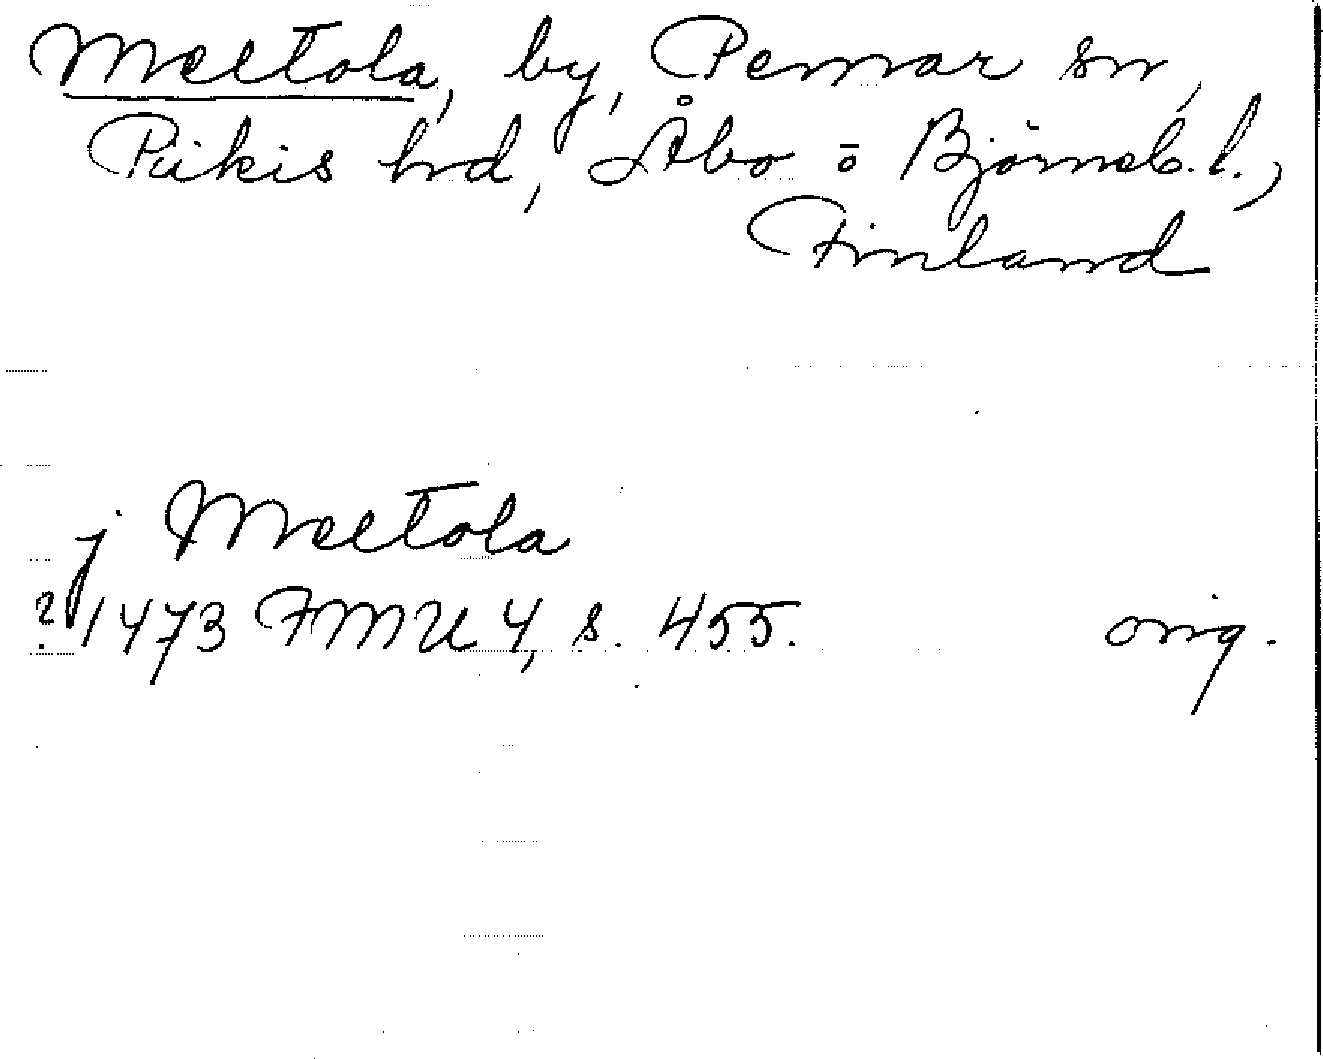 Meltola, by, Pemar sn,
Piikis hd, Åbo o Björneb. l.,
Finland
j Meltola
? 1473 FMU 4, s. 455. orig.